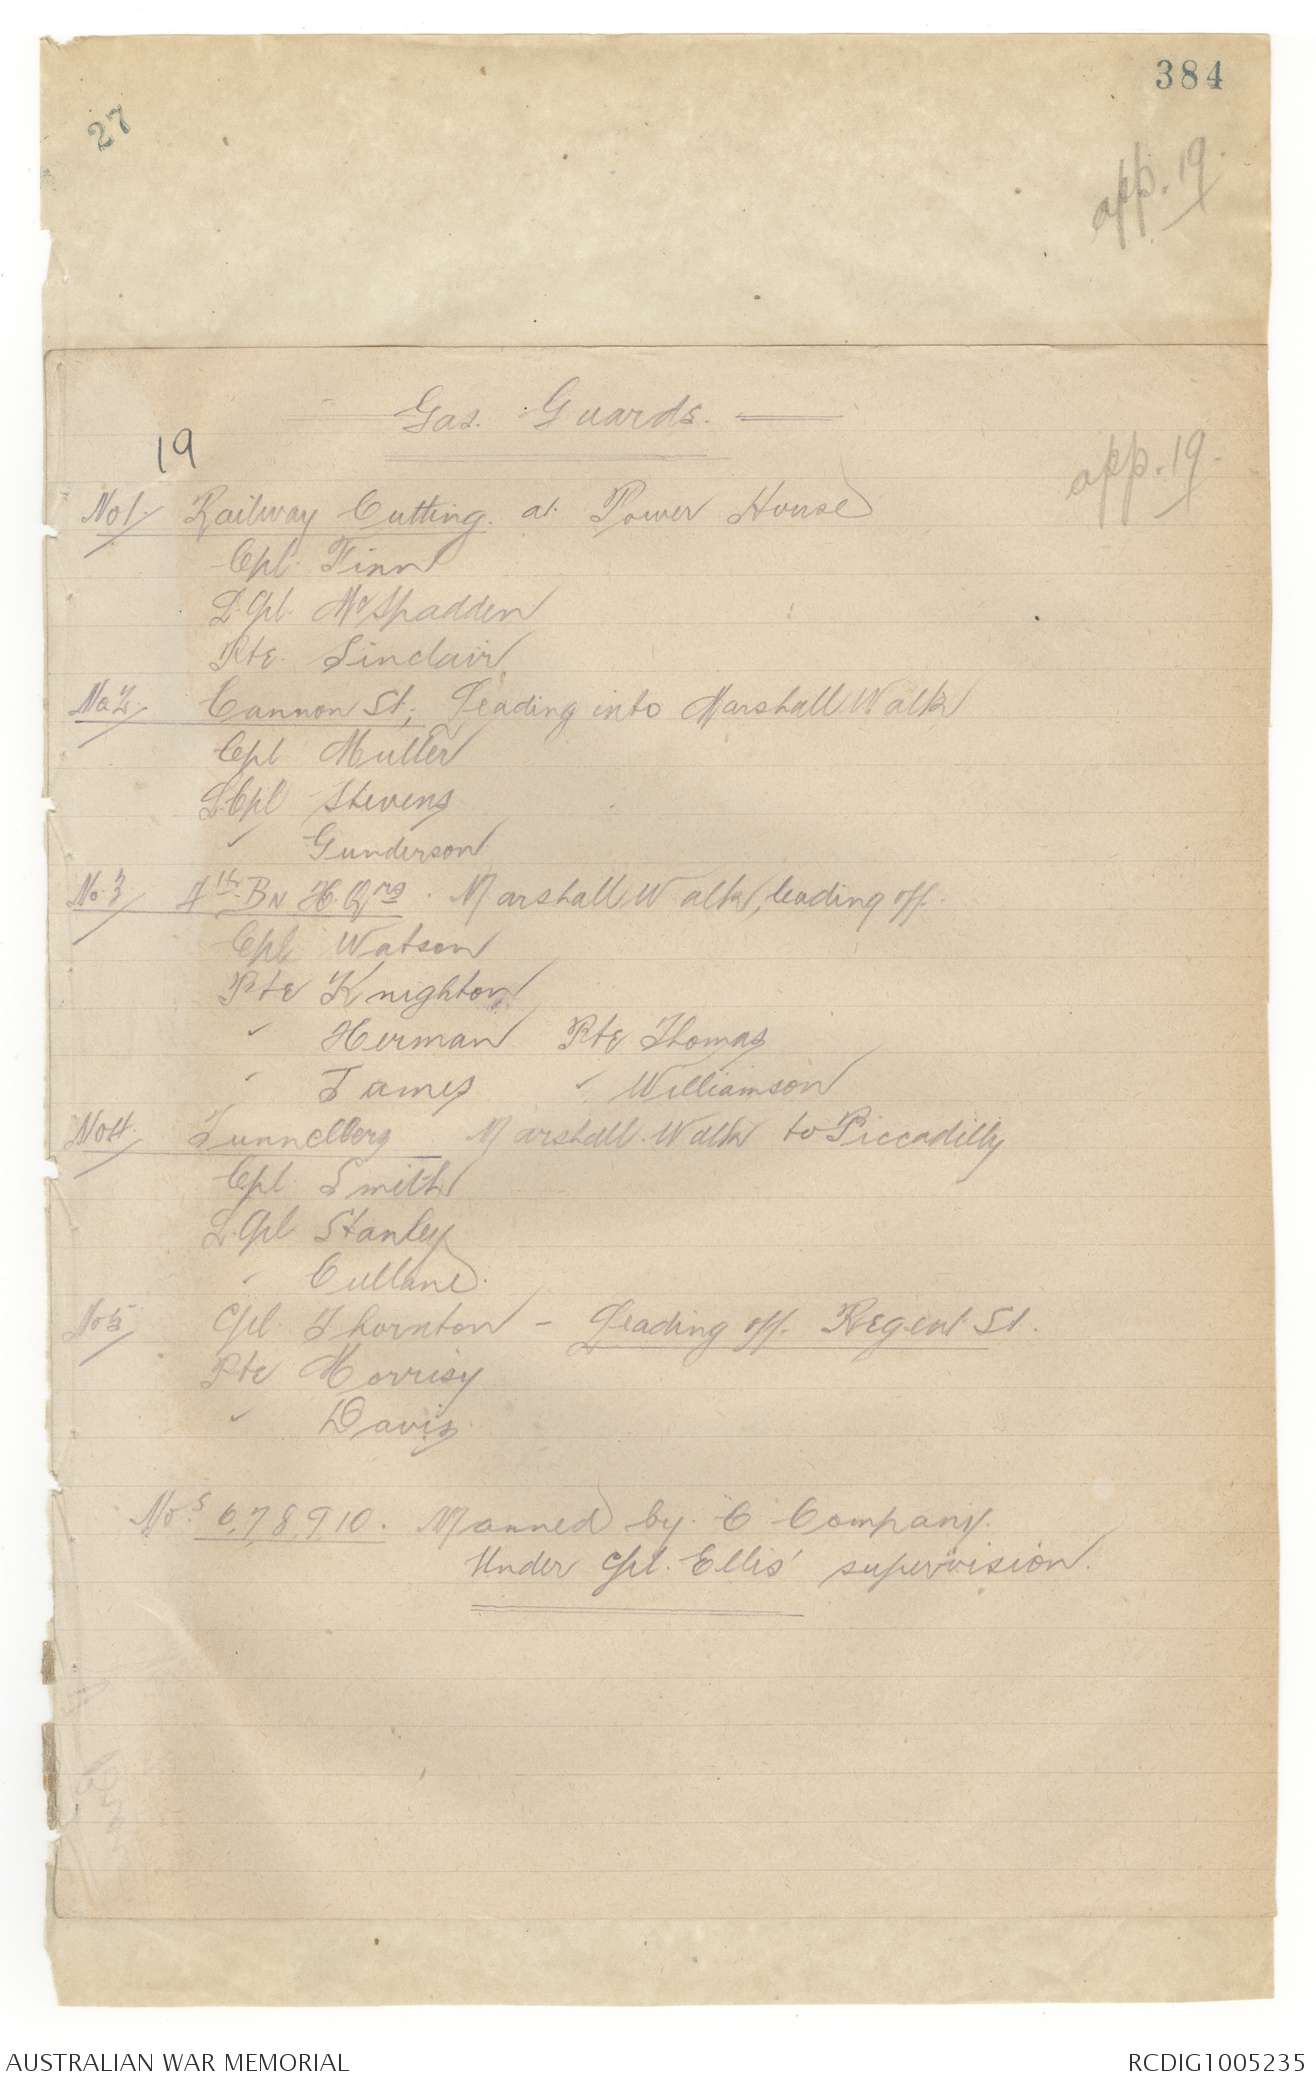 384
27
app. 19.
Gas. Guards.
19
app. 19.
No 1. Railway Cutting. at. Power House
Cpl. Finn
L. Cpl. McSpadden
Pte. Sinclair
No 2. Cannon St; Leading into Marshall Walk
Cpl Muller
L. Cpl Stevens
" Gunderson
No 3 4th Bn H. Qrs. Marshall Walk, leading off.
Cpl. Watson
Pte Knighton
" Herman Pte Thomas
" James " Williamson
No 4. Tunnellers Marshall. Walk to Piccadilly
Cpl. Smith
L. Cpl. Stanley
" Cullane.
No 5 Cpl. Thornton - Leading off. Regent St.
Pte Morrisy
" Davis.
No.s 6,7,8,9,10. Manned by. C Company.
Under Cpl. Ellis' supervision.
AUSTRALIAN WAR MEMORIAL
RCDIG1005235